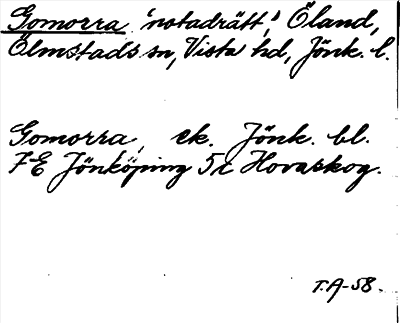 Gomorra 'notadrätt', Öland,
Ölmstads sn, Vista hd, Jönk. l.
Gomorra, ek. Jönk. bl.
7E Jönköping 5c Hovaskog.
T.A-58.